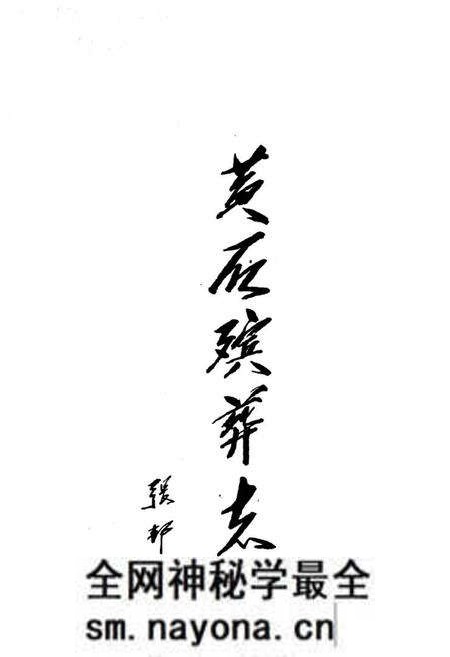 黄石殡葬志
張邦
全网神秘学最全
sm.nayona.cn